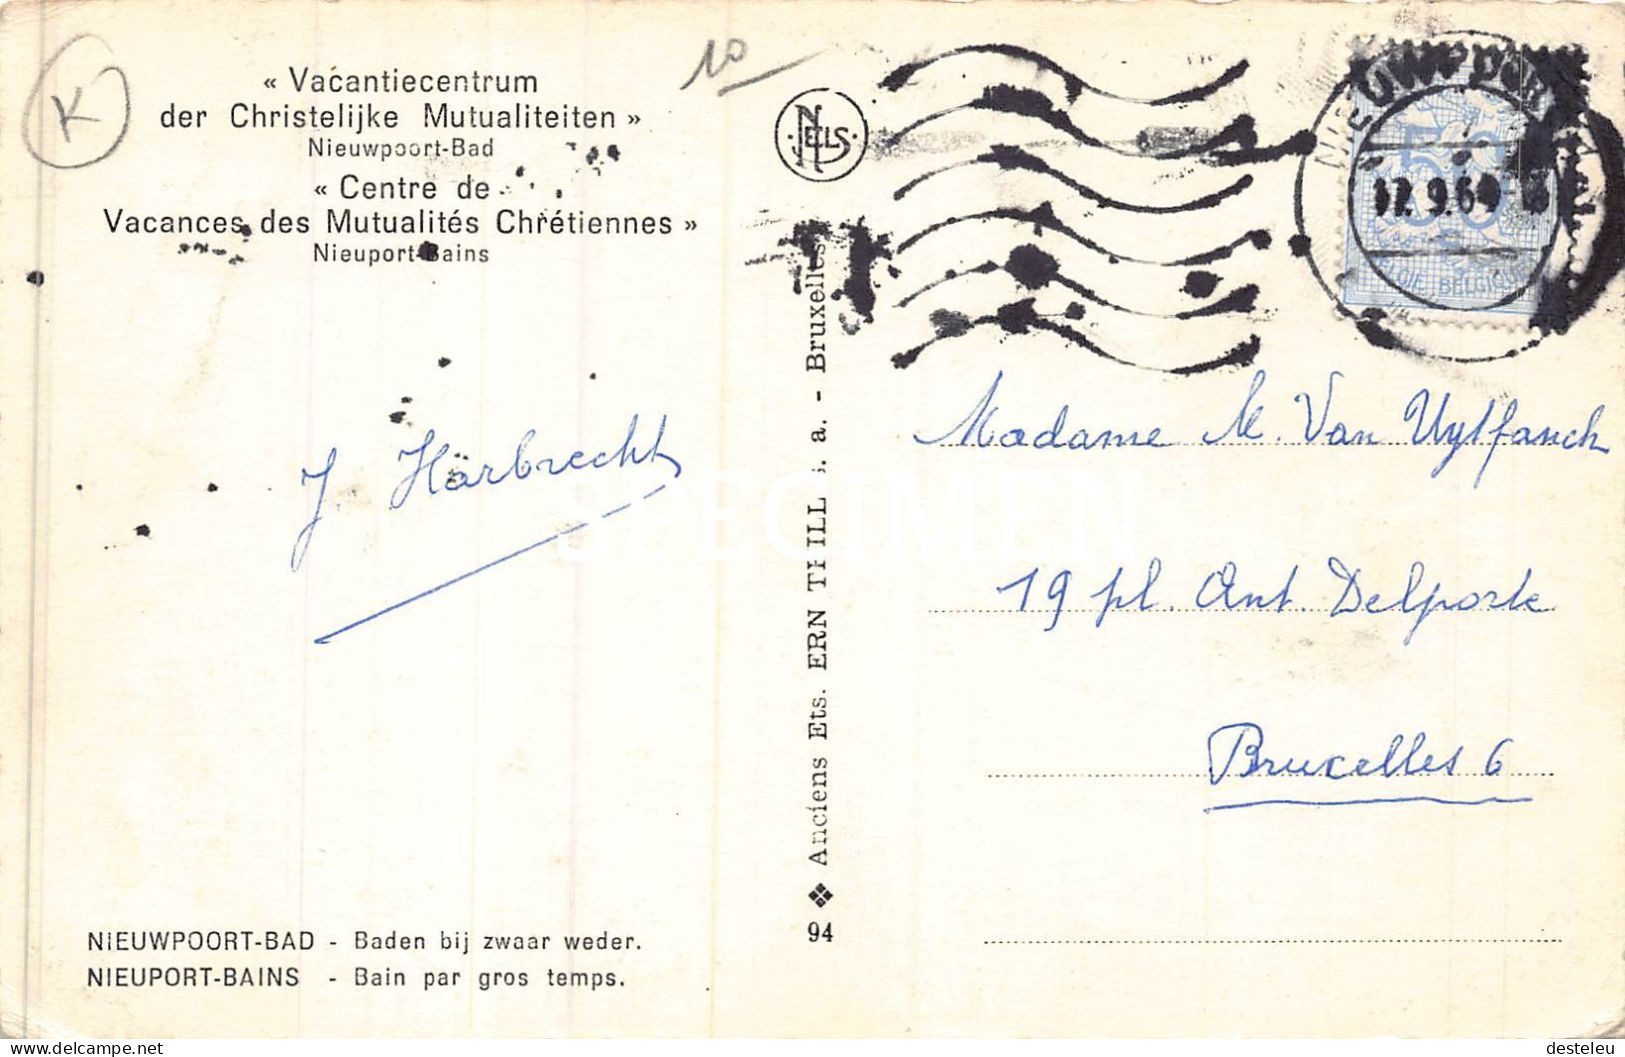 K
10
« Vacantiecentrum
der Christelijke Mutualiteiten »
Nieuwpoort-Bad
« Centre de
Vacances des Mutualités Chrétiennes »
Nieuport-Bains
NELS
50
BELGIE BELGIQUE
J. Harbrecht
SPECIMEN
Madame M. Van Uytfanck
19 pl. Ant. Delporte
Bruxelles 6
❖ Anciens Ets. ERN THILL s. a. - Bruxelles
94
NIEUWPOORT-BAD - Baden bij zwaar weder.
NIEUPORT-BAINS - Bain par gros temps.
delcampe.net
desteleu